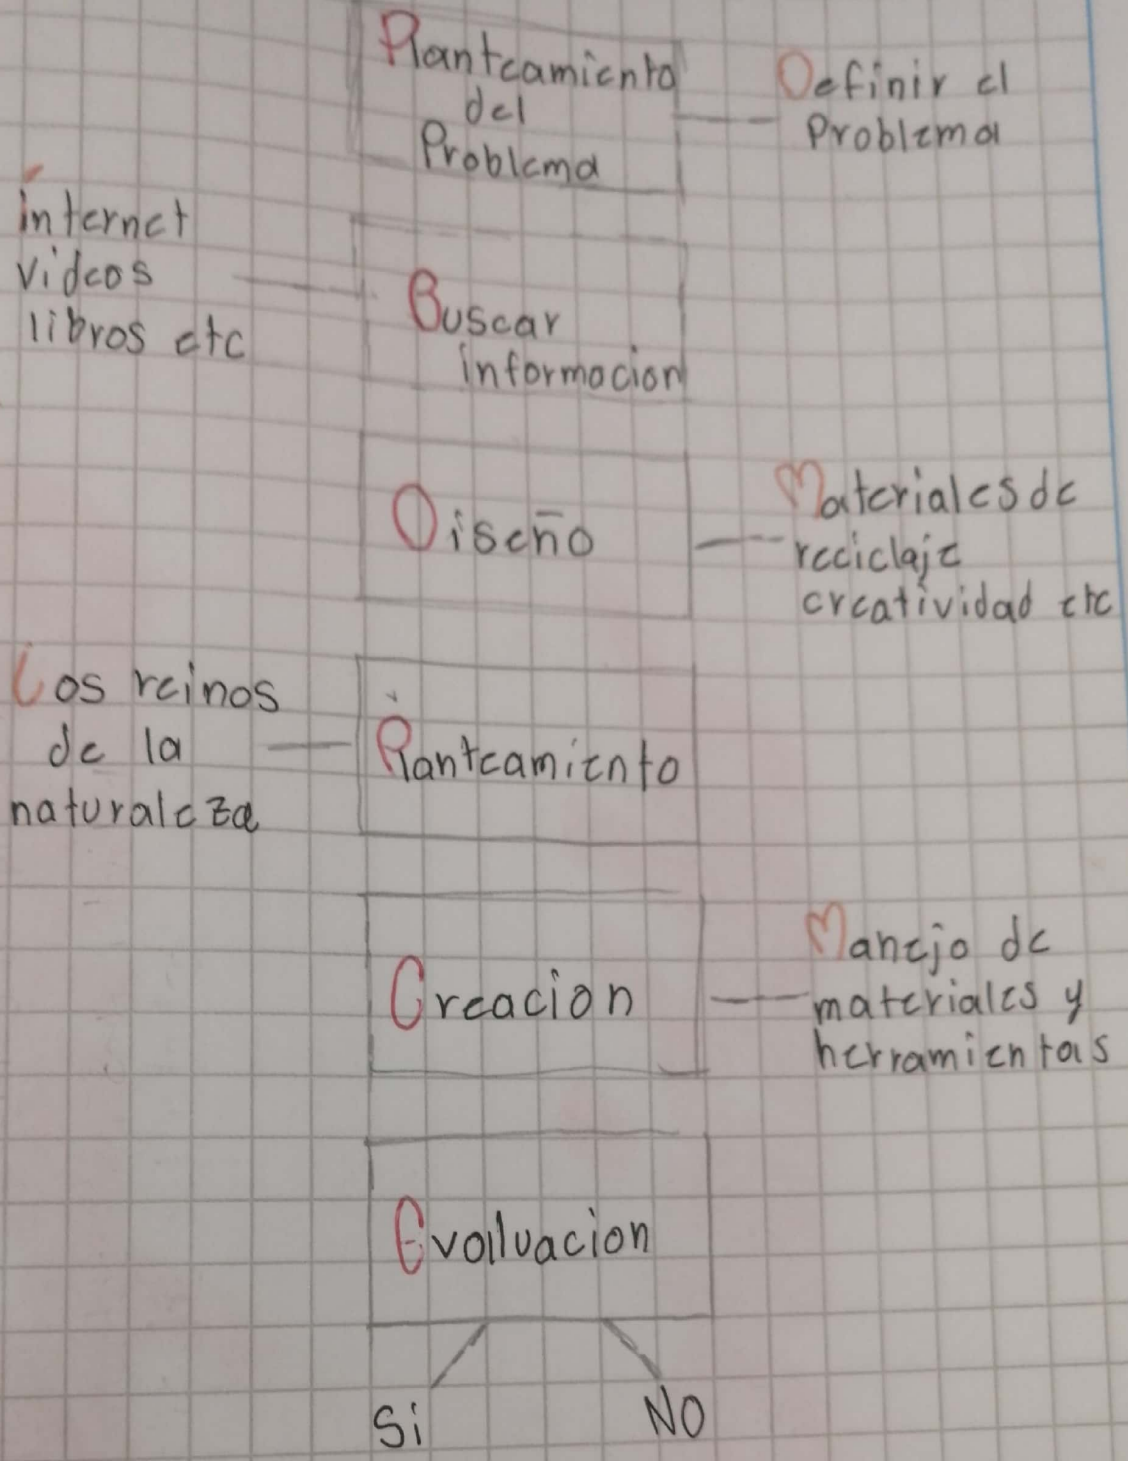 Planteamiento
del
Problema
Definir el
Problema
internet
videos
libros etc
Buscar
informacion
Diseño
Materiales de
reciclaje
creatividad etc
Los reinos
de la
naturaleza
Planteamiento
Creacion
Manejo de
materiales y
herramientas
Evaluacion
Si
NO